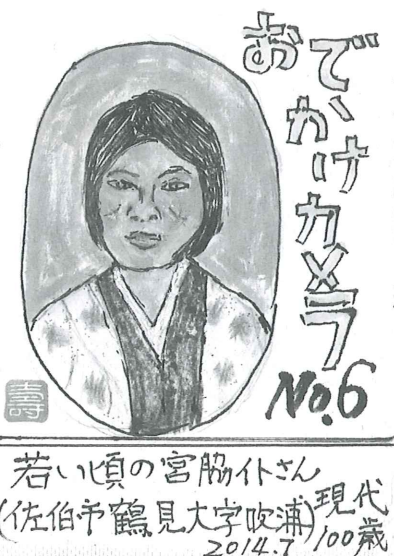 おでかけカメラ
No.6
壽
若い頃の宮脇イトさん
(佐伯市鶴見大字吹浦)現代
2014.7 100歳